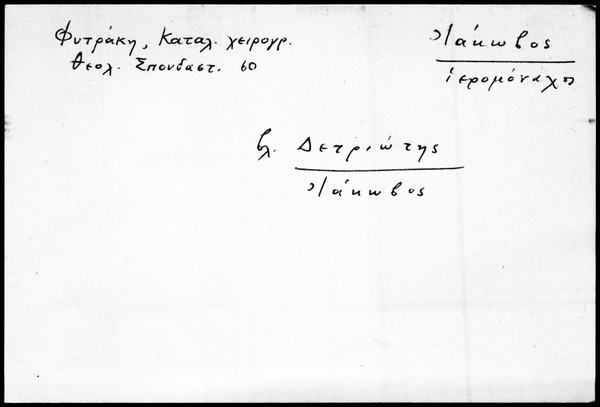 Φυτράκη, Καταλ. χειρογρ.
Θεολ. Σπουδαστ. 60
Ἰάκωβος
ἱερομόναχος
βλ. Δετριώτης
Ἰάκωβος